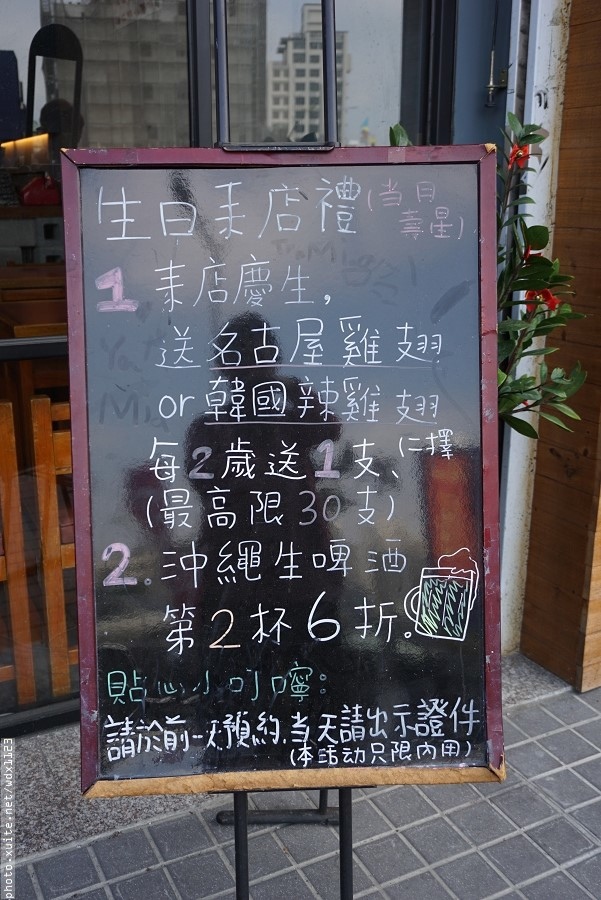 生日来店禮(当月壽星)
1 来店慶生,
送名古屋雞翅
or韓國辣雞翅
每2歲送1支、(二擇
(最高限30支)
2.沖繩生啤酒
第2杯6折。
貼心小叮嚀:
請於前一天預約,当天請出示證件
(本活动只限內用)
photo-xuite.net/wdx1123